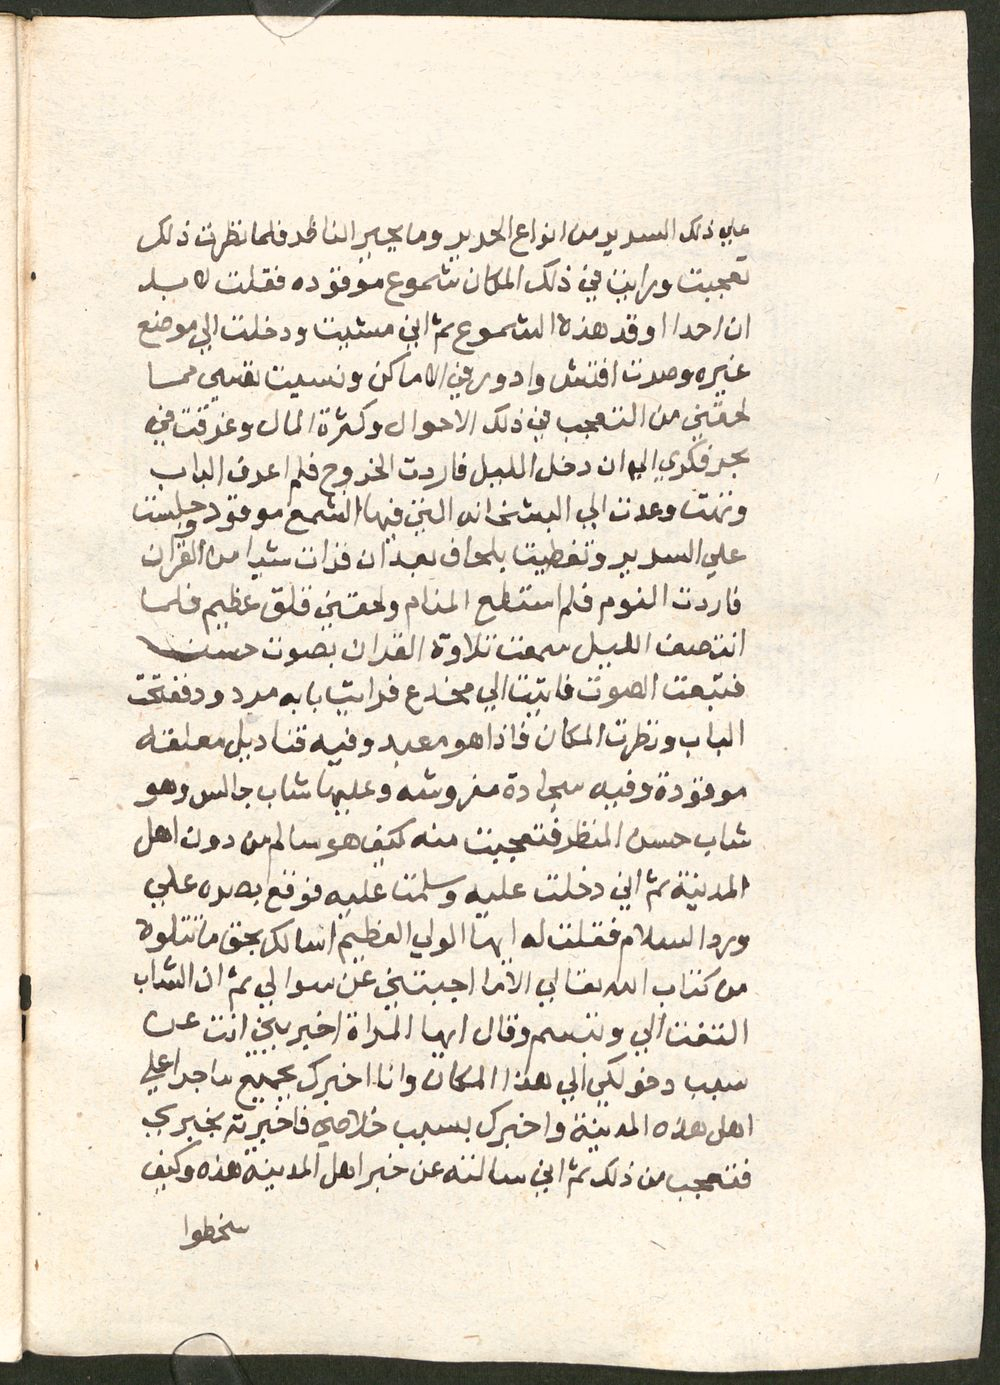 علي ذلك السرير من انواع الحرير وما يحير الناظر فلما نظرت ذلك
تعجبت ورايت في ذلك المكان شموع موقوده فقلت لا بد
ان احدا اوقد هذه الشموع ثم اني مشيت ودخلت الي موضع
غيره وصرت افتش وادور في الاماكن ونسيت نفسي مما
لحقني من التعجب في ذلك الاحوال وكثرة المال وغرقت في
بحر فكري الي ان دخل الليل فاردت الخروج فلم اعرف الباب
وتهت وعدت الي البشخانه التي فيها الشمع موقود وجلست
علي السرير وتغطيت بلحاف بعد ان قرات شيا من القران
فاردت النوم فلم استطع المنام ولحقني قلق عظيم فلما
انتصف الليل سمعت تلاوة القران بصوت حسن
فتبعت الصوت فاتيت الي مخدع فرايت بابه مردود ففتحت
الباب ونظرت المكان فاذا هو معبد وفيه قناديل معلقه
موقودة وفيه سجادة مفروشه وعليها شاب جالس وهو
شاب حسن المنظر فتعجبت منه كيف هو سالم من دون اهل
المدينة ثم اني دخلت عليه وسلمت عليه فوقع بصره علي
ورد السلام فقلت له ايها الولي العظيم اسالك بحق ما تتلوه
من كتاب الله تعالي الا ما اجبتني عن سوالي ثم ان الشاب
التفت الي وتبسم وقال ايها المراة اخبريني انت عن
سبب دخولكي الي هذا المكان وانا اخبرك بجميع ما جرا علي
اهل هذه المدينة واخبرك بسبب خلاصي فاخبرته بخبري
فتعجب من ذلك ثم اني سالته عن خبر اهل المدينة هذه وكيف
سخطوا